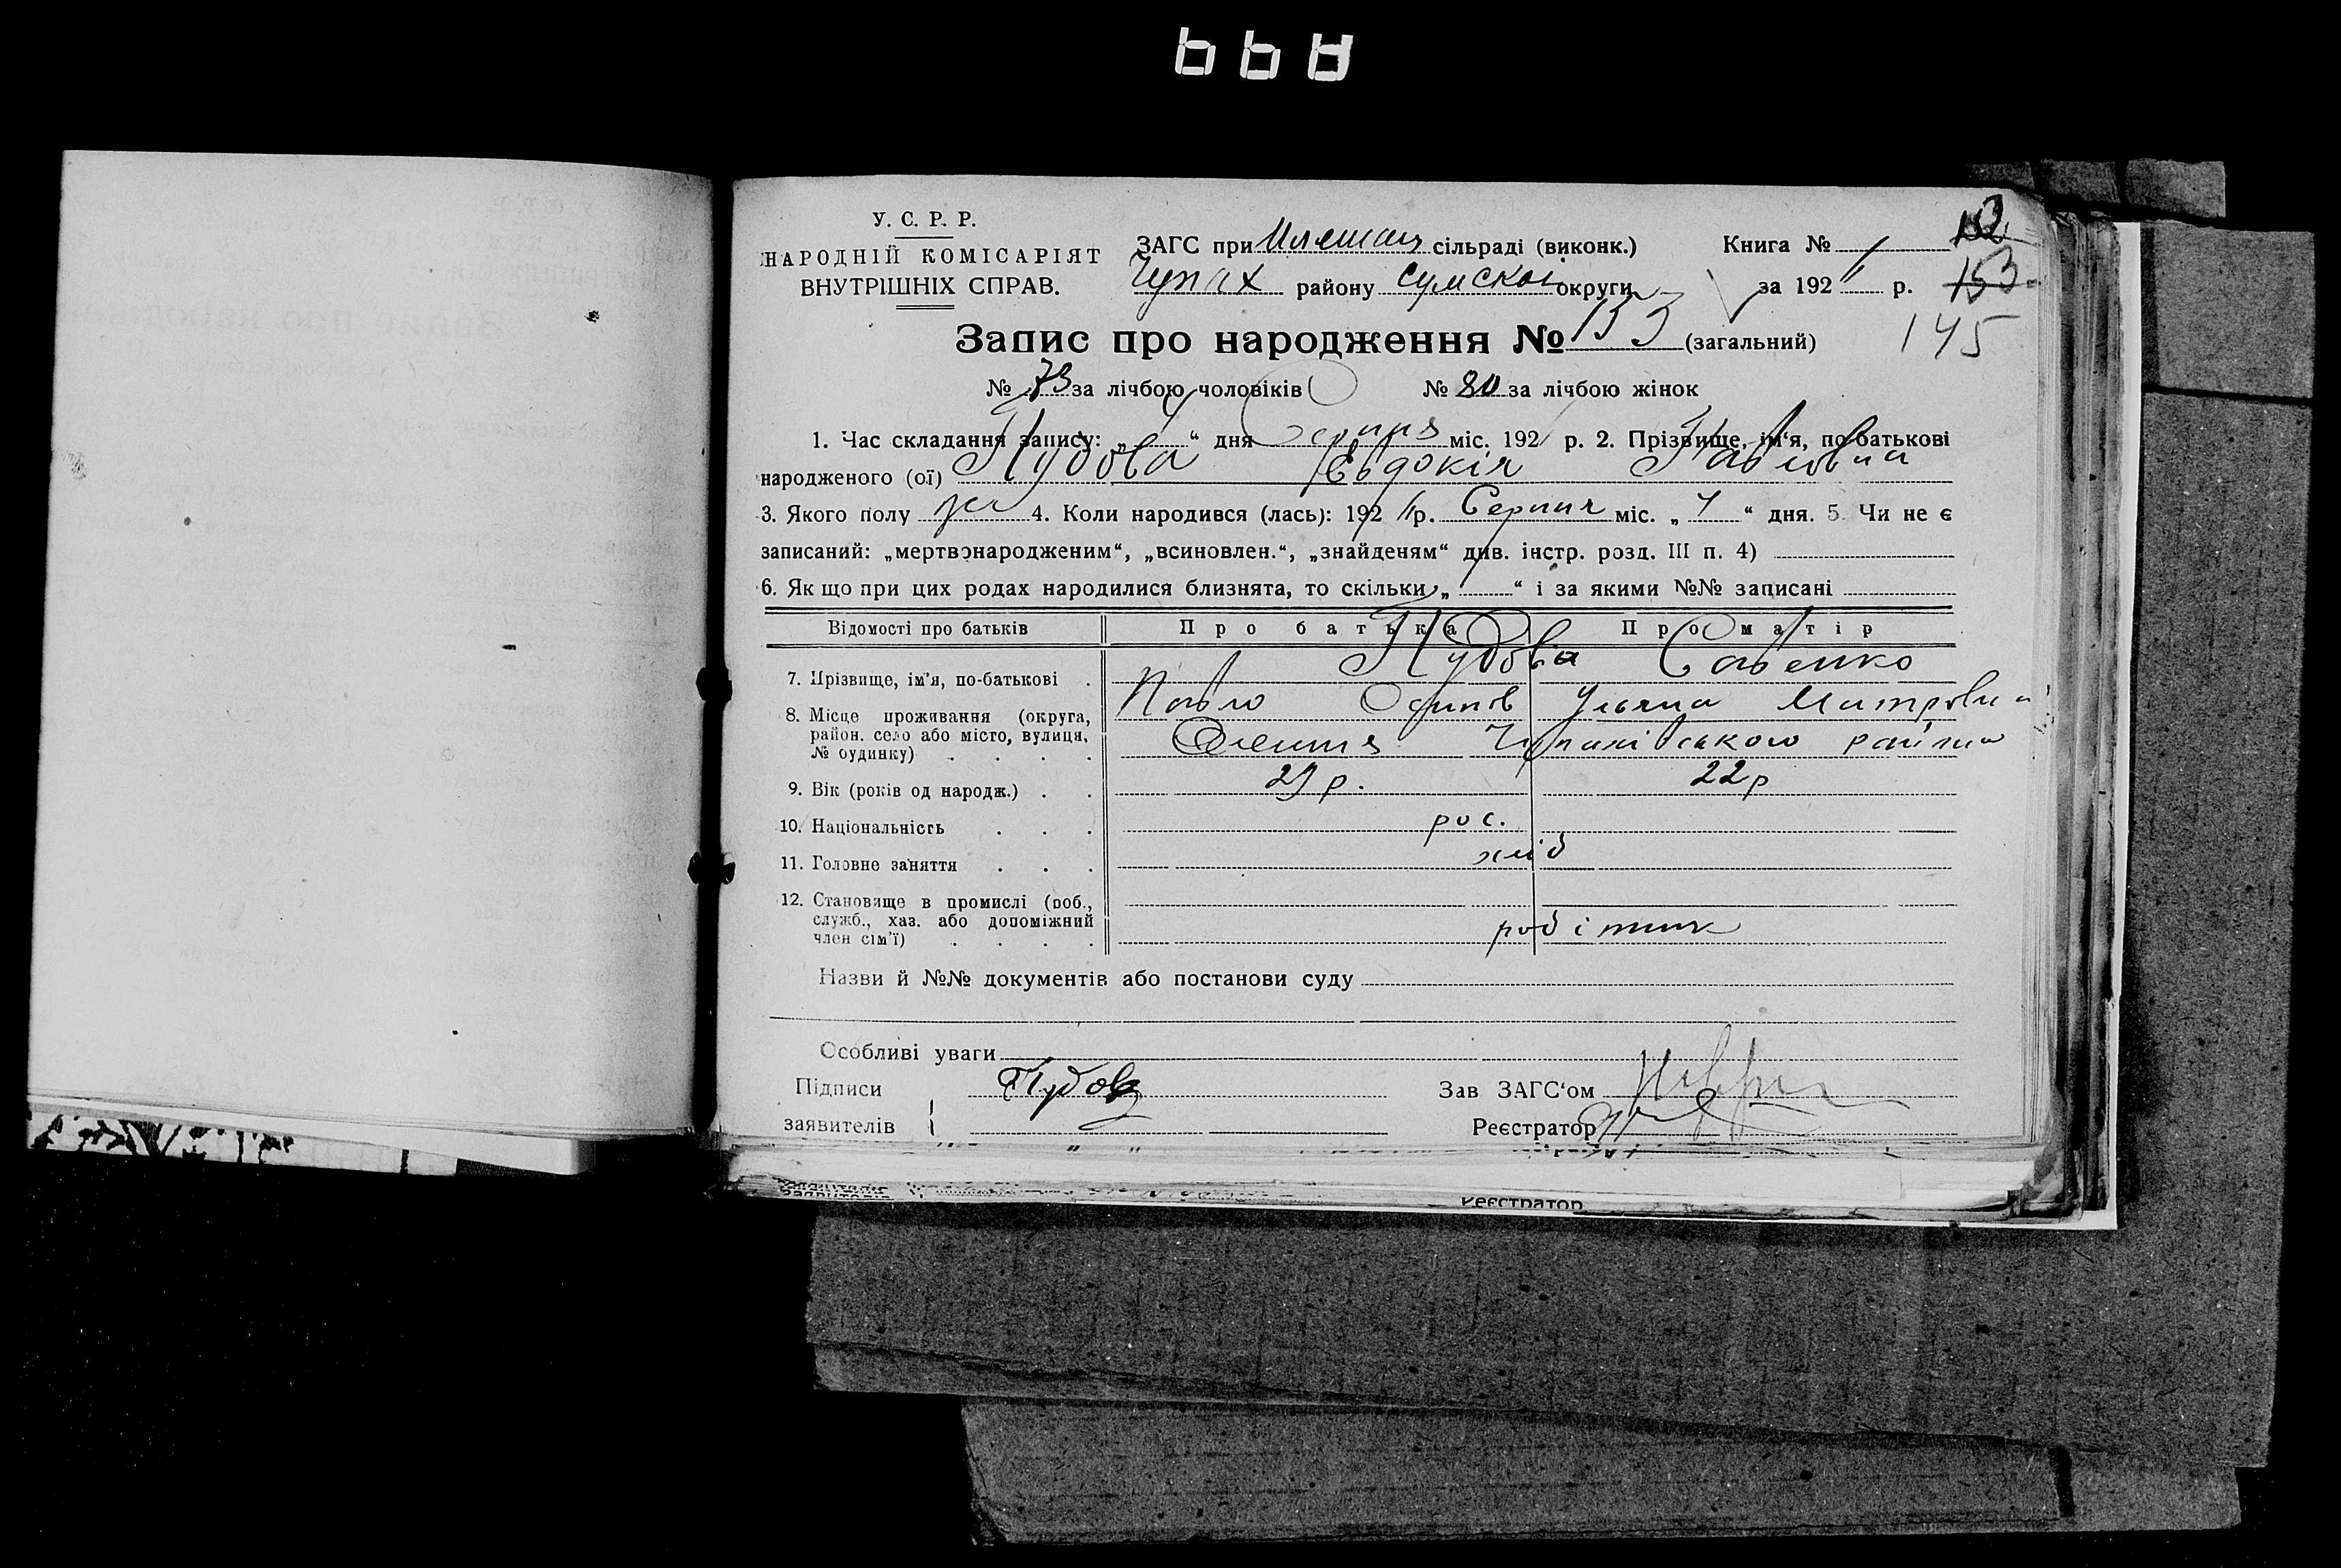 У. С. Р. Р.
НАРОДНІЙ КОМІСАРІЯТ
ВНУТРІШНІХ СПРАВ.
ЗАГС при сільраді (виконк.)
Чупах району Сумской округи
Книга № 1
за 192 р.
153
145
Запис про народження № 153 (загальний)
№ 73 за лічбою чоловіків № 80 за лічбою жінок
1. Час складання запису: „ “ дня Серпня міс. 192 р. 2. Прізвище, ім‘я, по-батькові
народженого (ої) Пудова Евдокія Павловна
3. Якого полу жін 4. Коли народився (лась): 192 р. Серпня міс. „ “ дня. 5. Чи не є
записаний: „мертвонародженим“, „всиновлен.“, „знайденям“ див. інстр. розд. III п. 4)
6. Як що при цих родах народилися близнята, то скільки „ “ і за якими №№ записані
Відомості про батьків Про батька Про матір
7. Прізвище, ім’я, по-батькові Пудова Савенко
Павло Осипов Уляна Митровна
8. Місце проживання (округа,
район. село або місто, вулиця,
№ будинку) Олешня Чупахівського району
9. Вік (років од народж.) 29 р. 22 р
10. Національність рос.
11. Головне заняття хліб
12. Становище в промислі (роб.,
служб., хаз. або допоміжний
член сім’ї) робітник
Назви й №№ документів або постанови суду
Особливі уваги
Підписи Пудов
заявителів
Зав ЗАГС‘ом
Реєстратор
Реєстратор